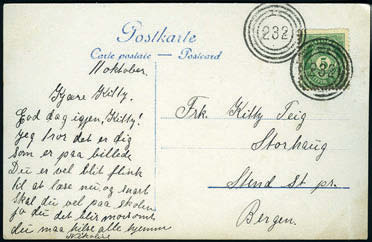 Postkarte
Carte postale — Postcard
232
5
232
11 oktober.
Kjære Kitty.
God dag igjen, Kitty!
Jeg tror det er dig
som er paa billede
Du er vel blit flink
til at læse nu og snart
skal du vel paa skolen
ja du det blir morsomt
du maa hilse alle hjemme
Frk. Kitty Teig
Storhaug
Stend St pr.
Bergen.